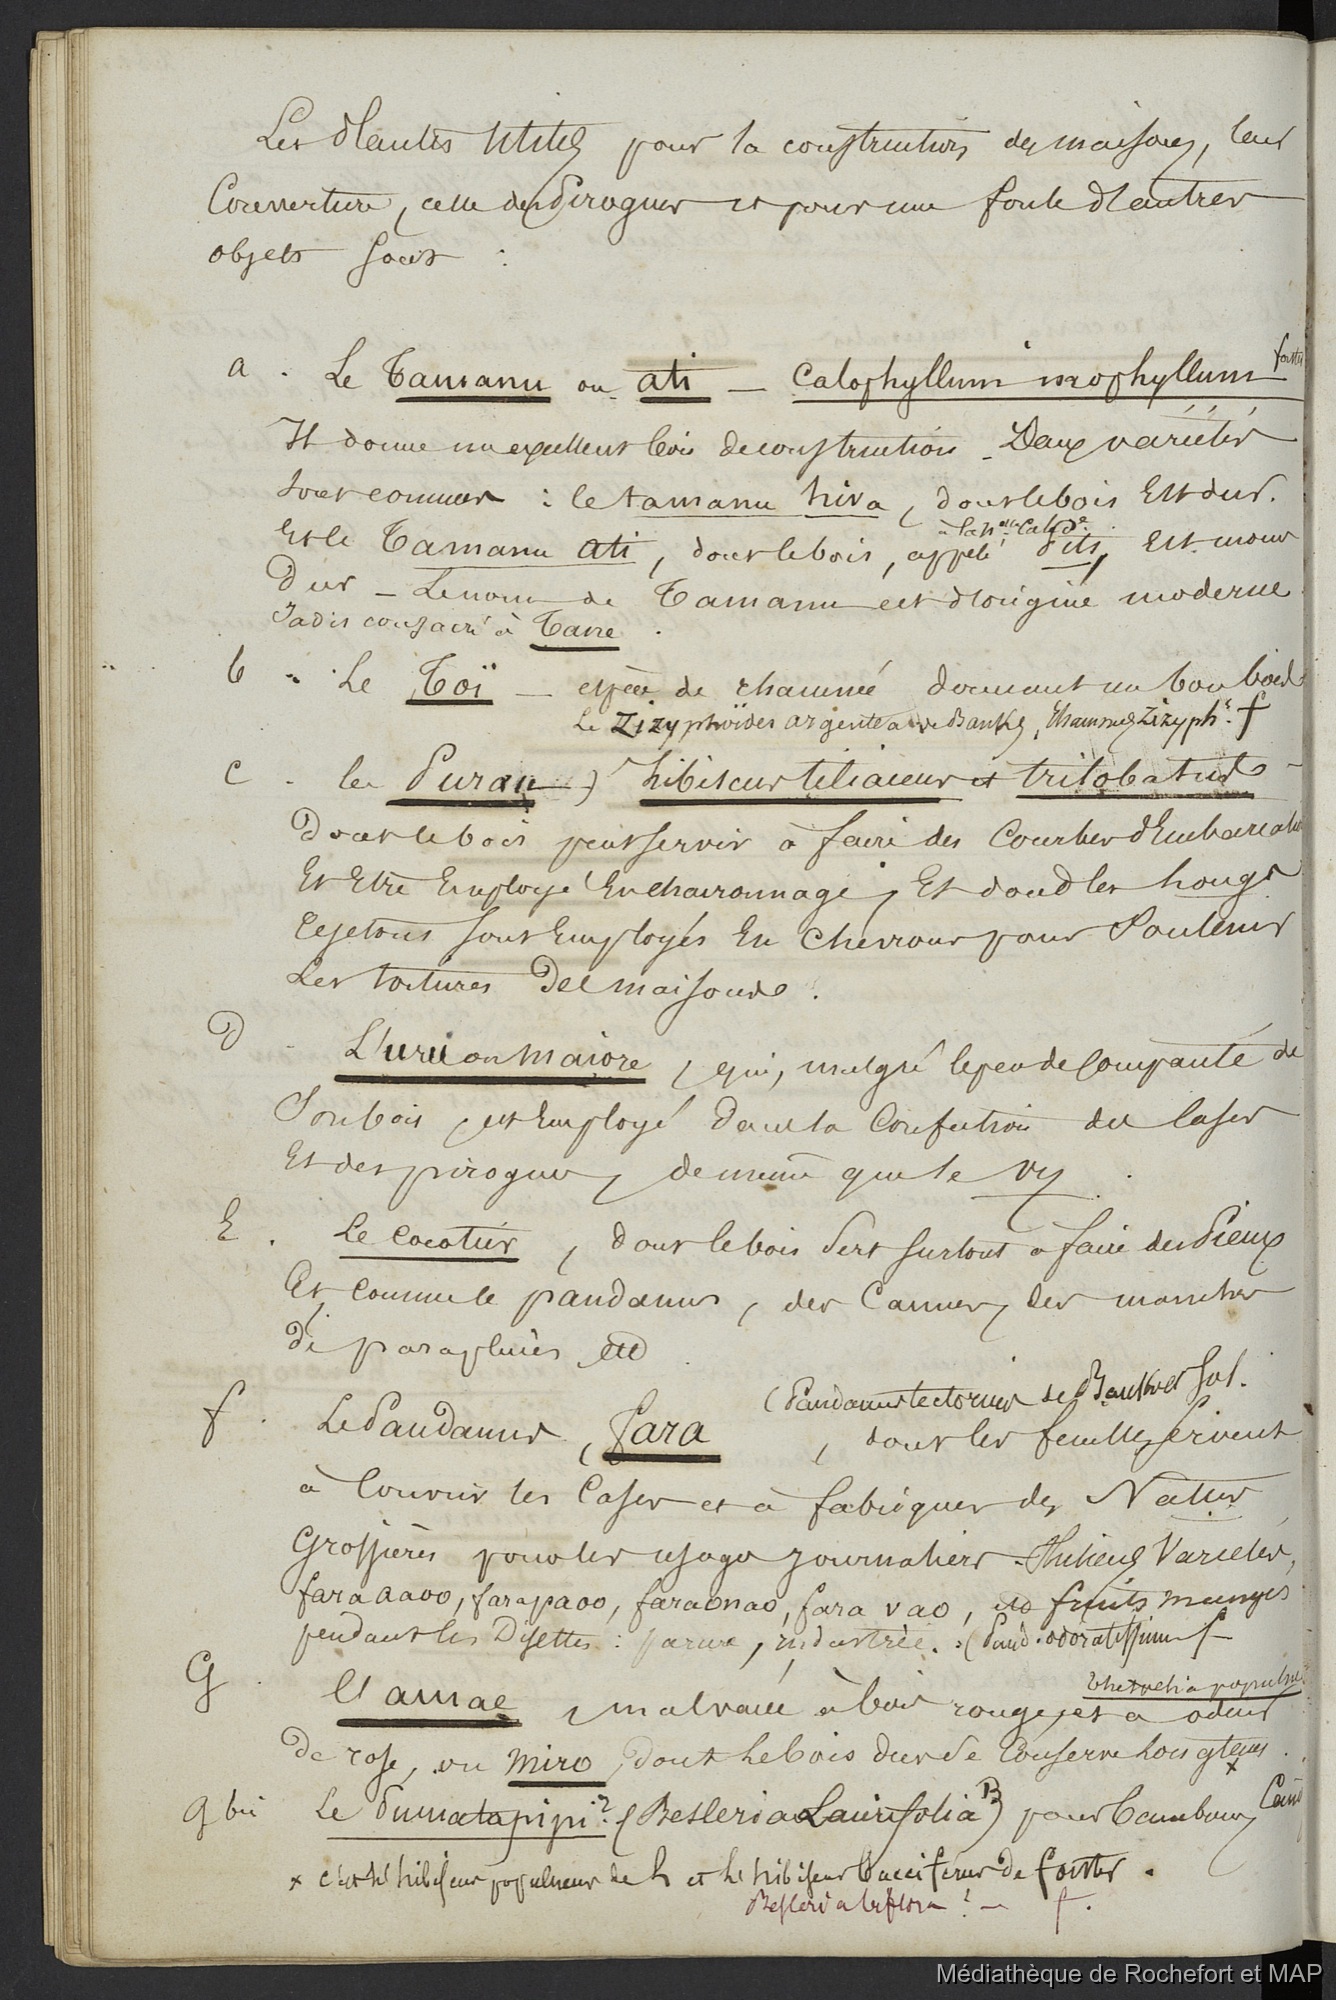 Les Plantes utiles pour la construction des maisons, leur
Couverture, celle des Pirogues et pour une foule d'autres
objets sont :
a . Le Tamanu ou ati — Calophyllum inophyllum forster
Il donne un excellent bois de construction _ Deux variétés
sont connues : le tamanu hiva, dont le bois Est dur.
Et le Tamanu ati, dont le bois, appelé Piti, Est moins
Dur _ Le nom de Tamanu est d'origine moderne.
Jadis consacré à Tane .
b . Le Toï — espèce de rhamnée donnant un bon bois
Le Zizyphoïdes argentea de Banks, Rhamnus Zizyph. f
c . le Purau ) hibiscus tiliaceus et trilobatus
Dont le bois peut servir à faire des Courbes d'Embarcation
Et Etre Employé En charronnage, Et dont les longs
rejetons sont Employés En Chevrons pour Soutenir
Les toitures Des maisons .
D . L'uru ou maiore, qui, malgré le peu de Compacité de
Son bois, est Employé Dans la Confection des Cases
Et des pirogues, de meme que le vy .
E . Le Cocotier, dont le bois Sert surtout à faire des Pieux
Et comme le pandanus, des Cannes, des manches
de parapluies, etc
(Pandanus tectorius de Banks et Sol.
f . Le Pandanus, fara , dont les feuilles Servent
à Couvrir les Cases et à fabriquer des Nattes
Grossières pour les usages journaliers . Plusieurs Variétés,
fara aaoo, farapaoo, faraonao, fara vao, etc fruits mangés
pendant les Disettes : parure, industrie. (Pand. odoratissimus f
Thespesia populnea
G . L'amae, malvacée à bois rouge, et à odeur
de rose, ou miro, dont le bois dur se Conserve longtems x .
g bis Le Pumatapipi ? (Besleria Laurifolia B) pour tambours
x c'est l'hibiscus populneus de L et l'hibiscus bacciferus de forster .
Besleria biflora ? — f .
Médiathèque de Rochefort et MAP